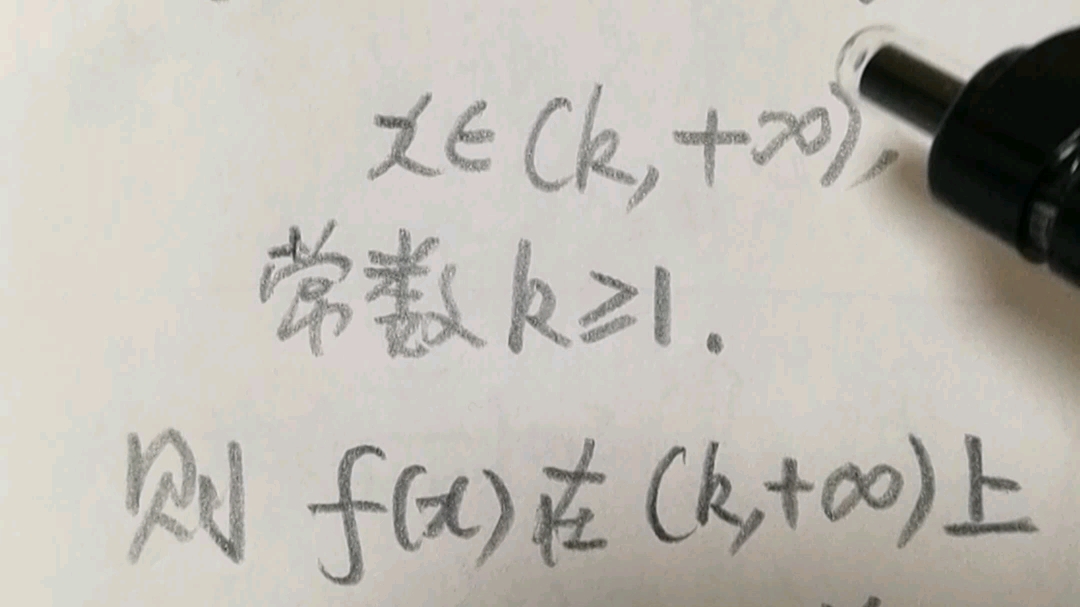 x∈(k,+∞),
常数k≥1.
则 f(x)在(k,+∞)上